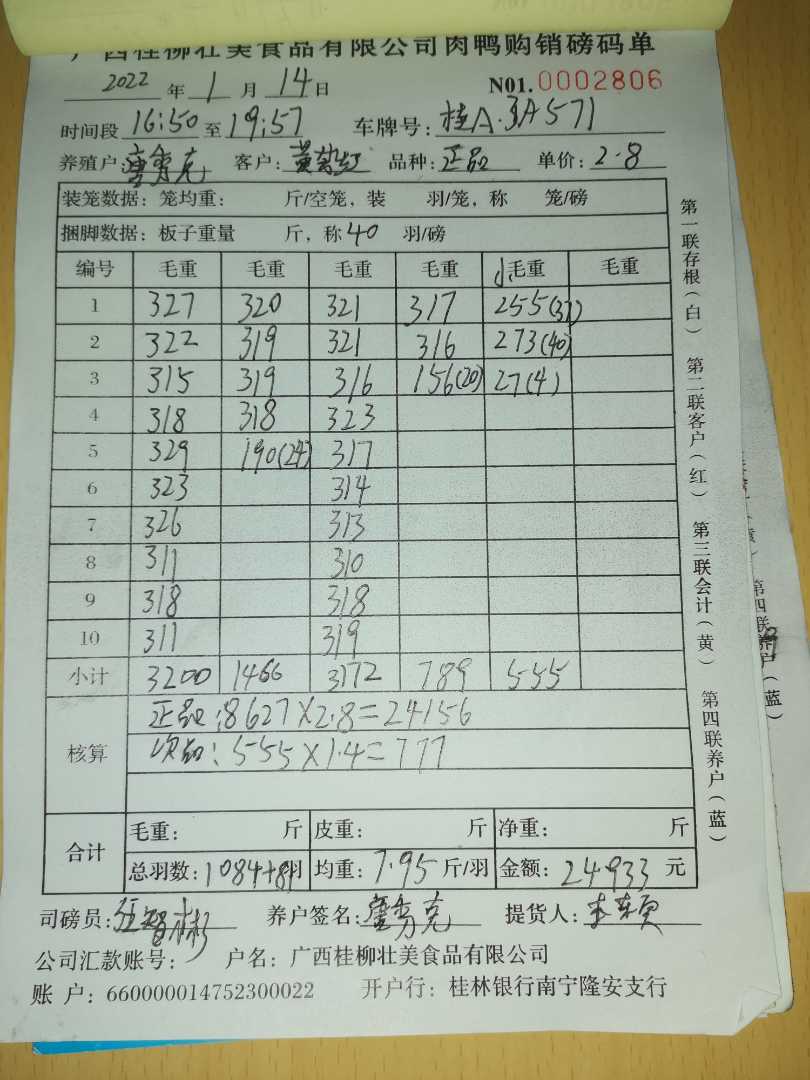 广西桂柳壮美食品有限公司肉鸭购销磅码单
2022 年 1 月 14 日 N01. 0002806
时间段 16:50 至 19:57 车牌号: 桂A·3A571
养殖户: 客户: 黄 红 品种: 正品 单价: 2.8
装笼数据: 笼均重: 斤/空笼, 装 羽/笼, 称 笼/磅
捆脚数据: 板子重量 斤, 称 40 羽/磅
编号 毛重 毛重 毛重 毛重 小毛重 毛重
1 327 320 321 317 255(37)
2 322 319 321 316 273(40)
3 315 319 316 156(20) 27(4)
4 318 318 323
5 329 190(24) 317
6 323 314
7 326 313
8 311 310
9 318 318
10 311 319
小计 3200 1466 3172 789 555
核算
正品:8627×2.8=24156
次品:555×1.4=777
合计
毛重: 斤 皮重: 斤 净重: 斤
总羽数: 1084+81羽 均重: 7.95 斤/羽 金额: 24933 元
司磅员: 养户签名: 提货人:
公司汇款账号: 户名: 广西桂柳壮美食品有限公司
账 户: 660000014752300022 开户行: 桂林银行南宁隆安支行
第一联存根(白) 第二联客户(红) 第三联会计(黄) 第四联养户(蓝)
第四联养户(蓝)